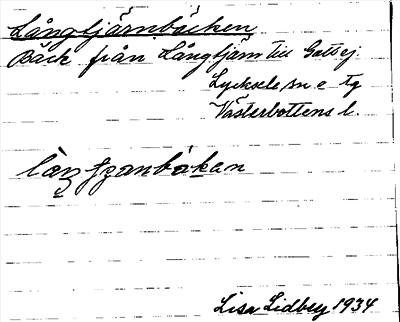 Långtjärnbäcken
Bäck från Långtjärn till Gatsej.
Lycksele sn o tg
Västerbottens l.
Lisa Lidberg 1934